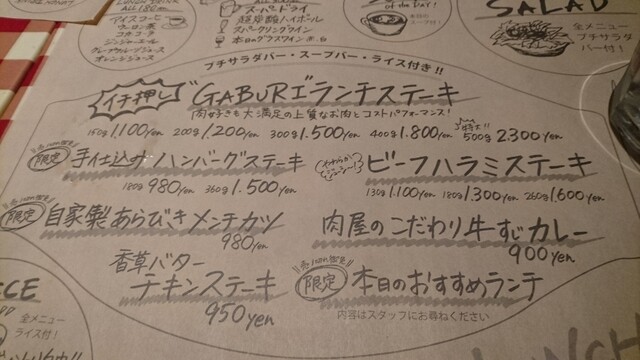 ALL 180yen
アイスコーヒー
ウーロン茶
コカ・コーラ
ジンジャーエール
グレープフルーツジュース
オレンジジュース
スーパードライ
超炭酸ハイボール
スパークリングワイン
本日のグラスワイン 赤・白
of the Day!
SALAD
全メニュー
プチサラダ
バー付!
プチサラダバー・スープバー・ライス付き!!
イチ押し
"GABURI"ランチステーキ
肉好きも大満足の上質なお肉とコストパフォーマンス!
150g 1.100yen 200g 1.200yen 300g 1.500yen 400g 1.800yen 特大!! 500g 2.300yen
限定 手仕込みハンバーグステーキ
180g 980yen 360g 1.500yen
ビーフハラミステーキ
130g 1.100yen 180g 1.300yen 260g 1.600yen
限定 自家製あらびきメンチカツ
980yen
肉屋のこだわり牛すじカレー
900yen
香草バター
チキンステーキ
950yen
限定 本日のおすすめランチ
内容はスタッフにお尋ねください
全メニュー
ライス付!